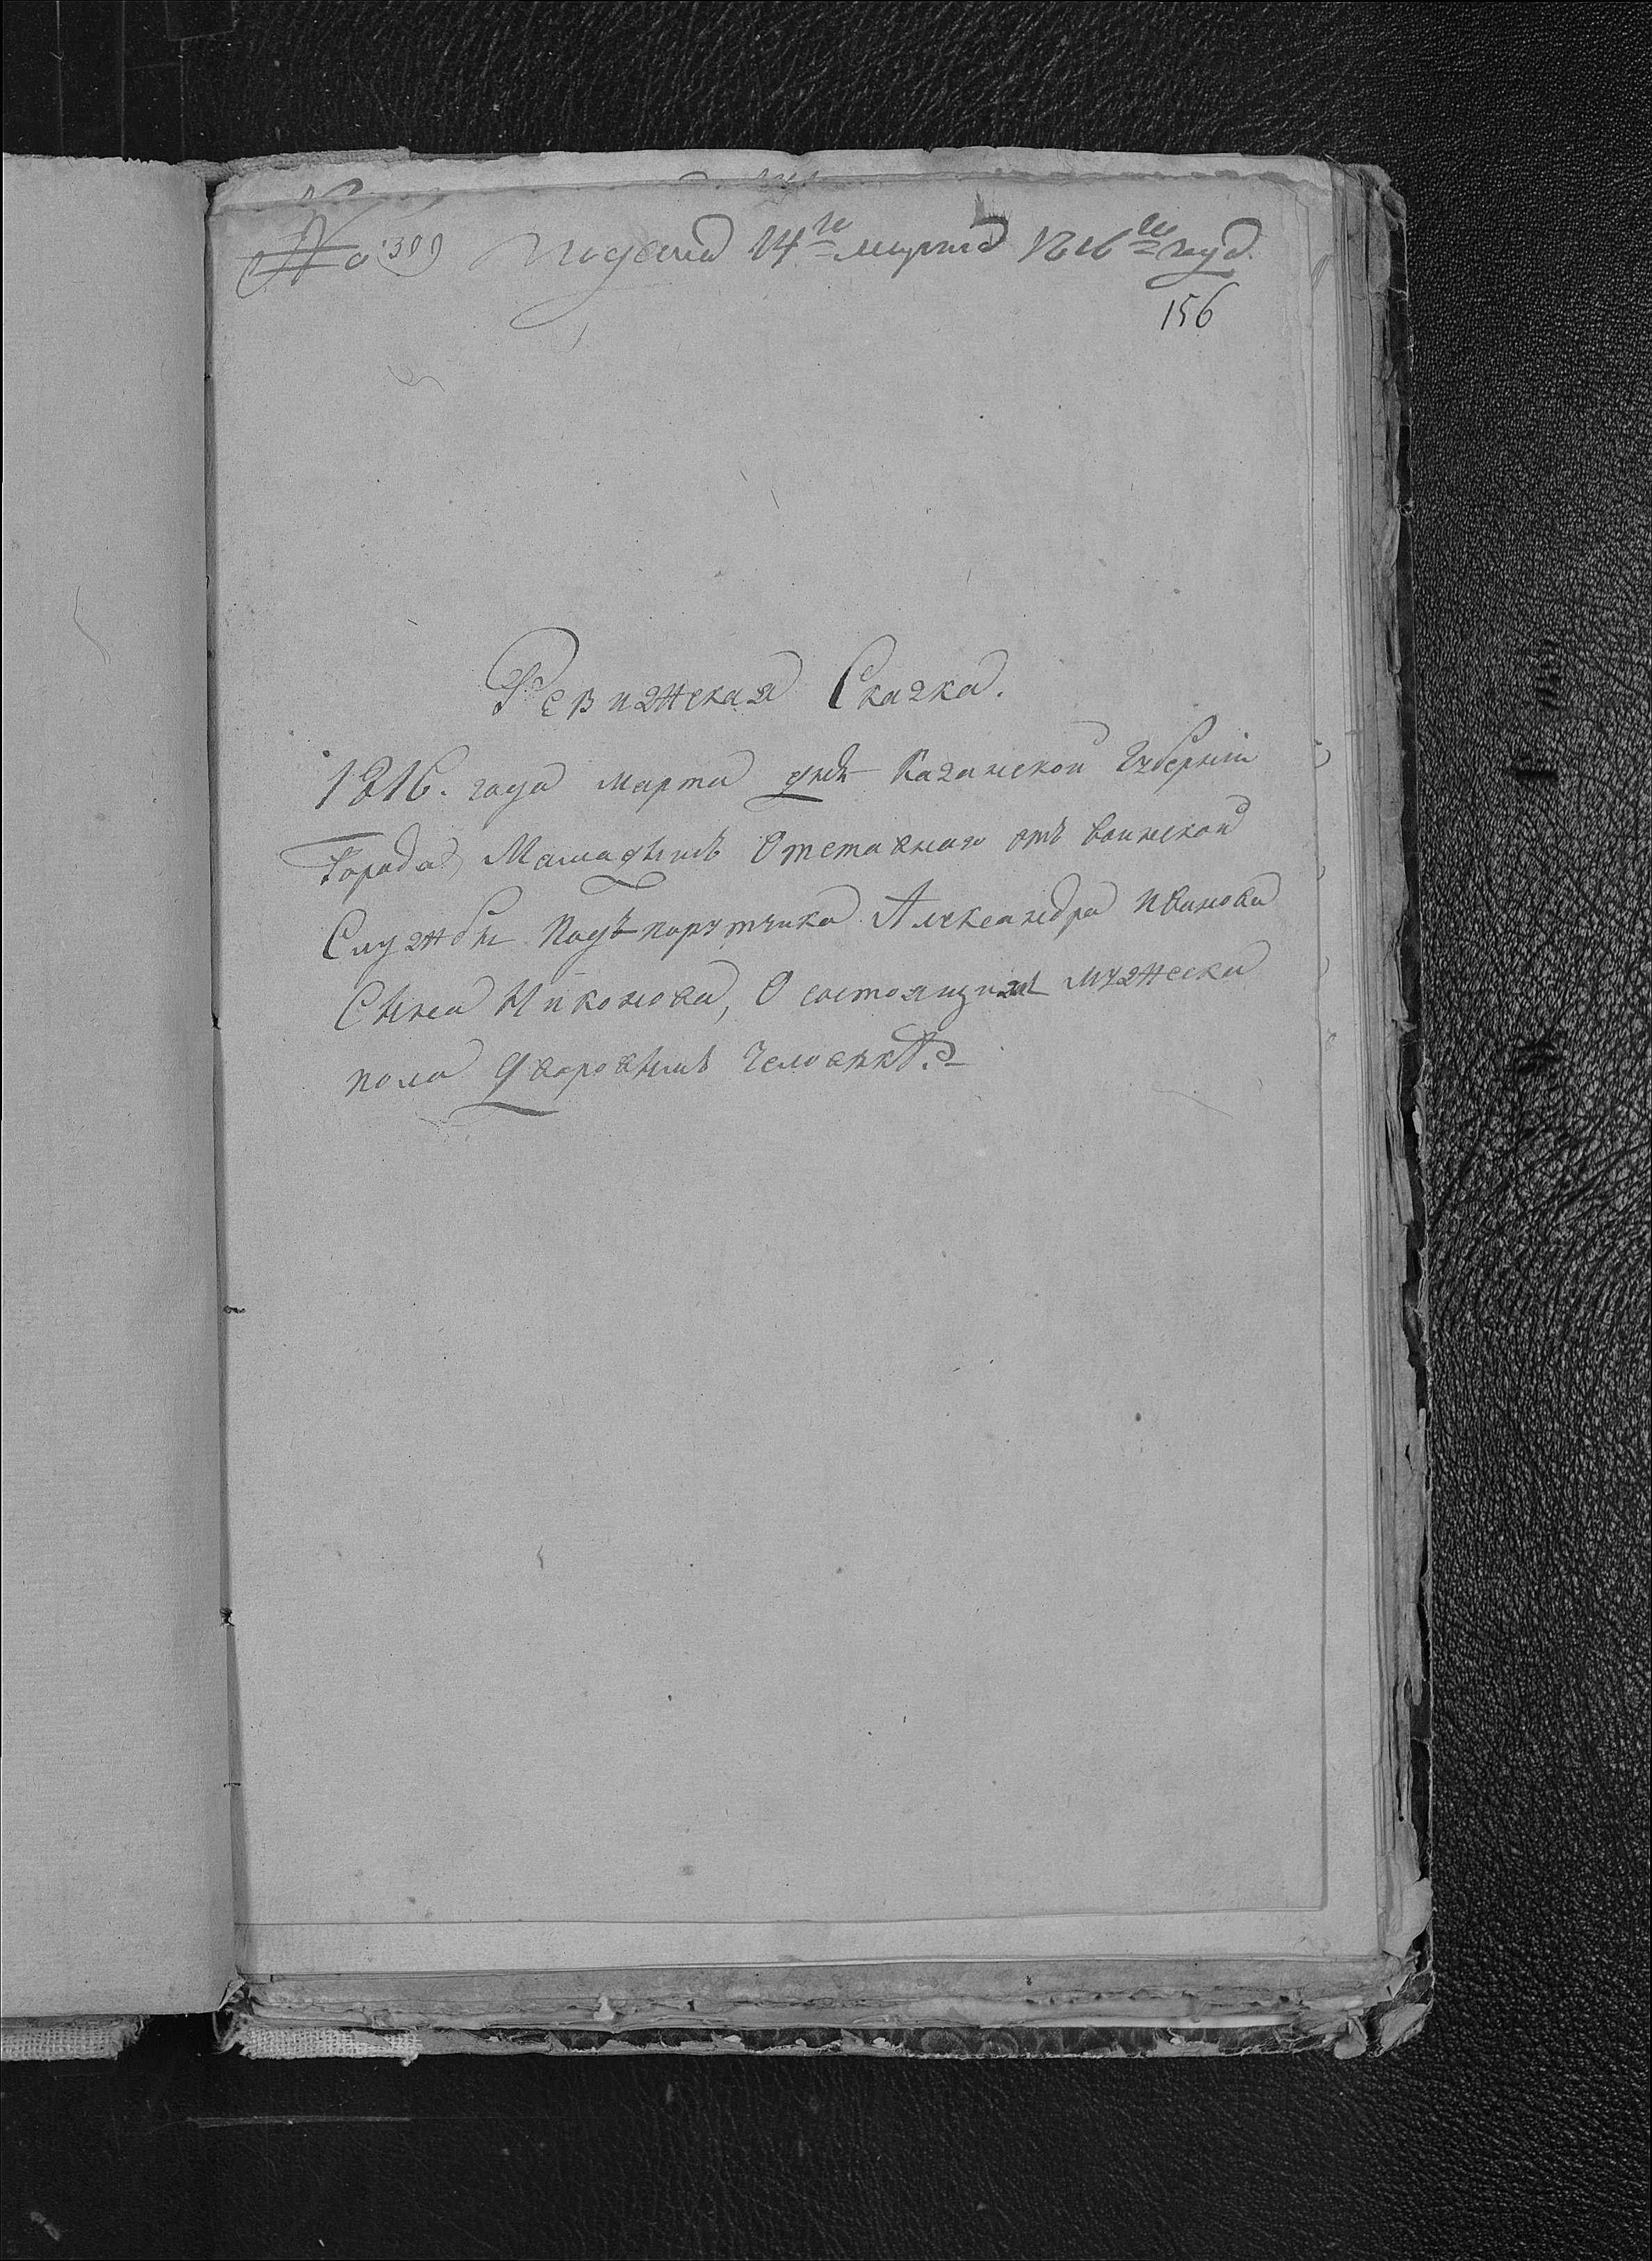 № 309 Подана 14го марта 1816го года.
156
Ревижская Сказка.
1816. года марта дня Казанской Губернiи
Города Мамадышъ Отставнаго отъ воинской
Службы Подъпорутчика Александра Иванова
Сына Никонова, О состоящихъ мужеска
пола дворовыхъ человѣкъ.